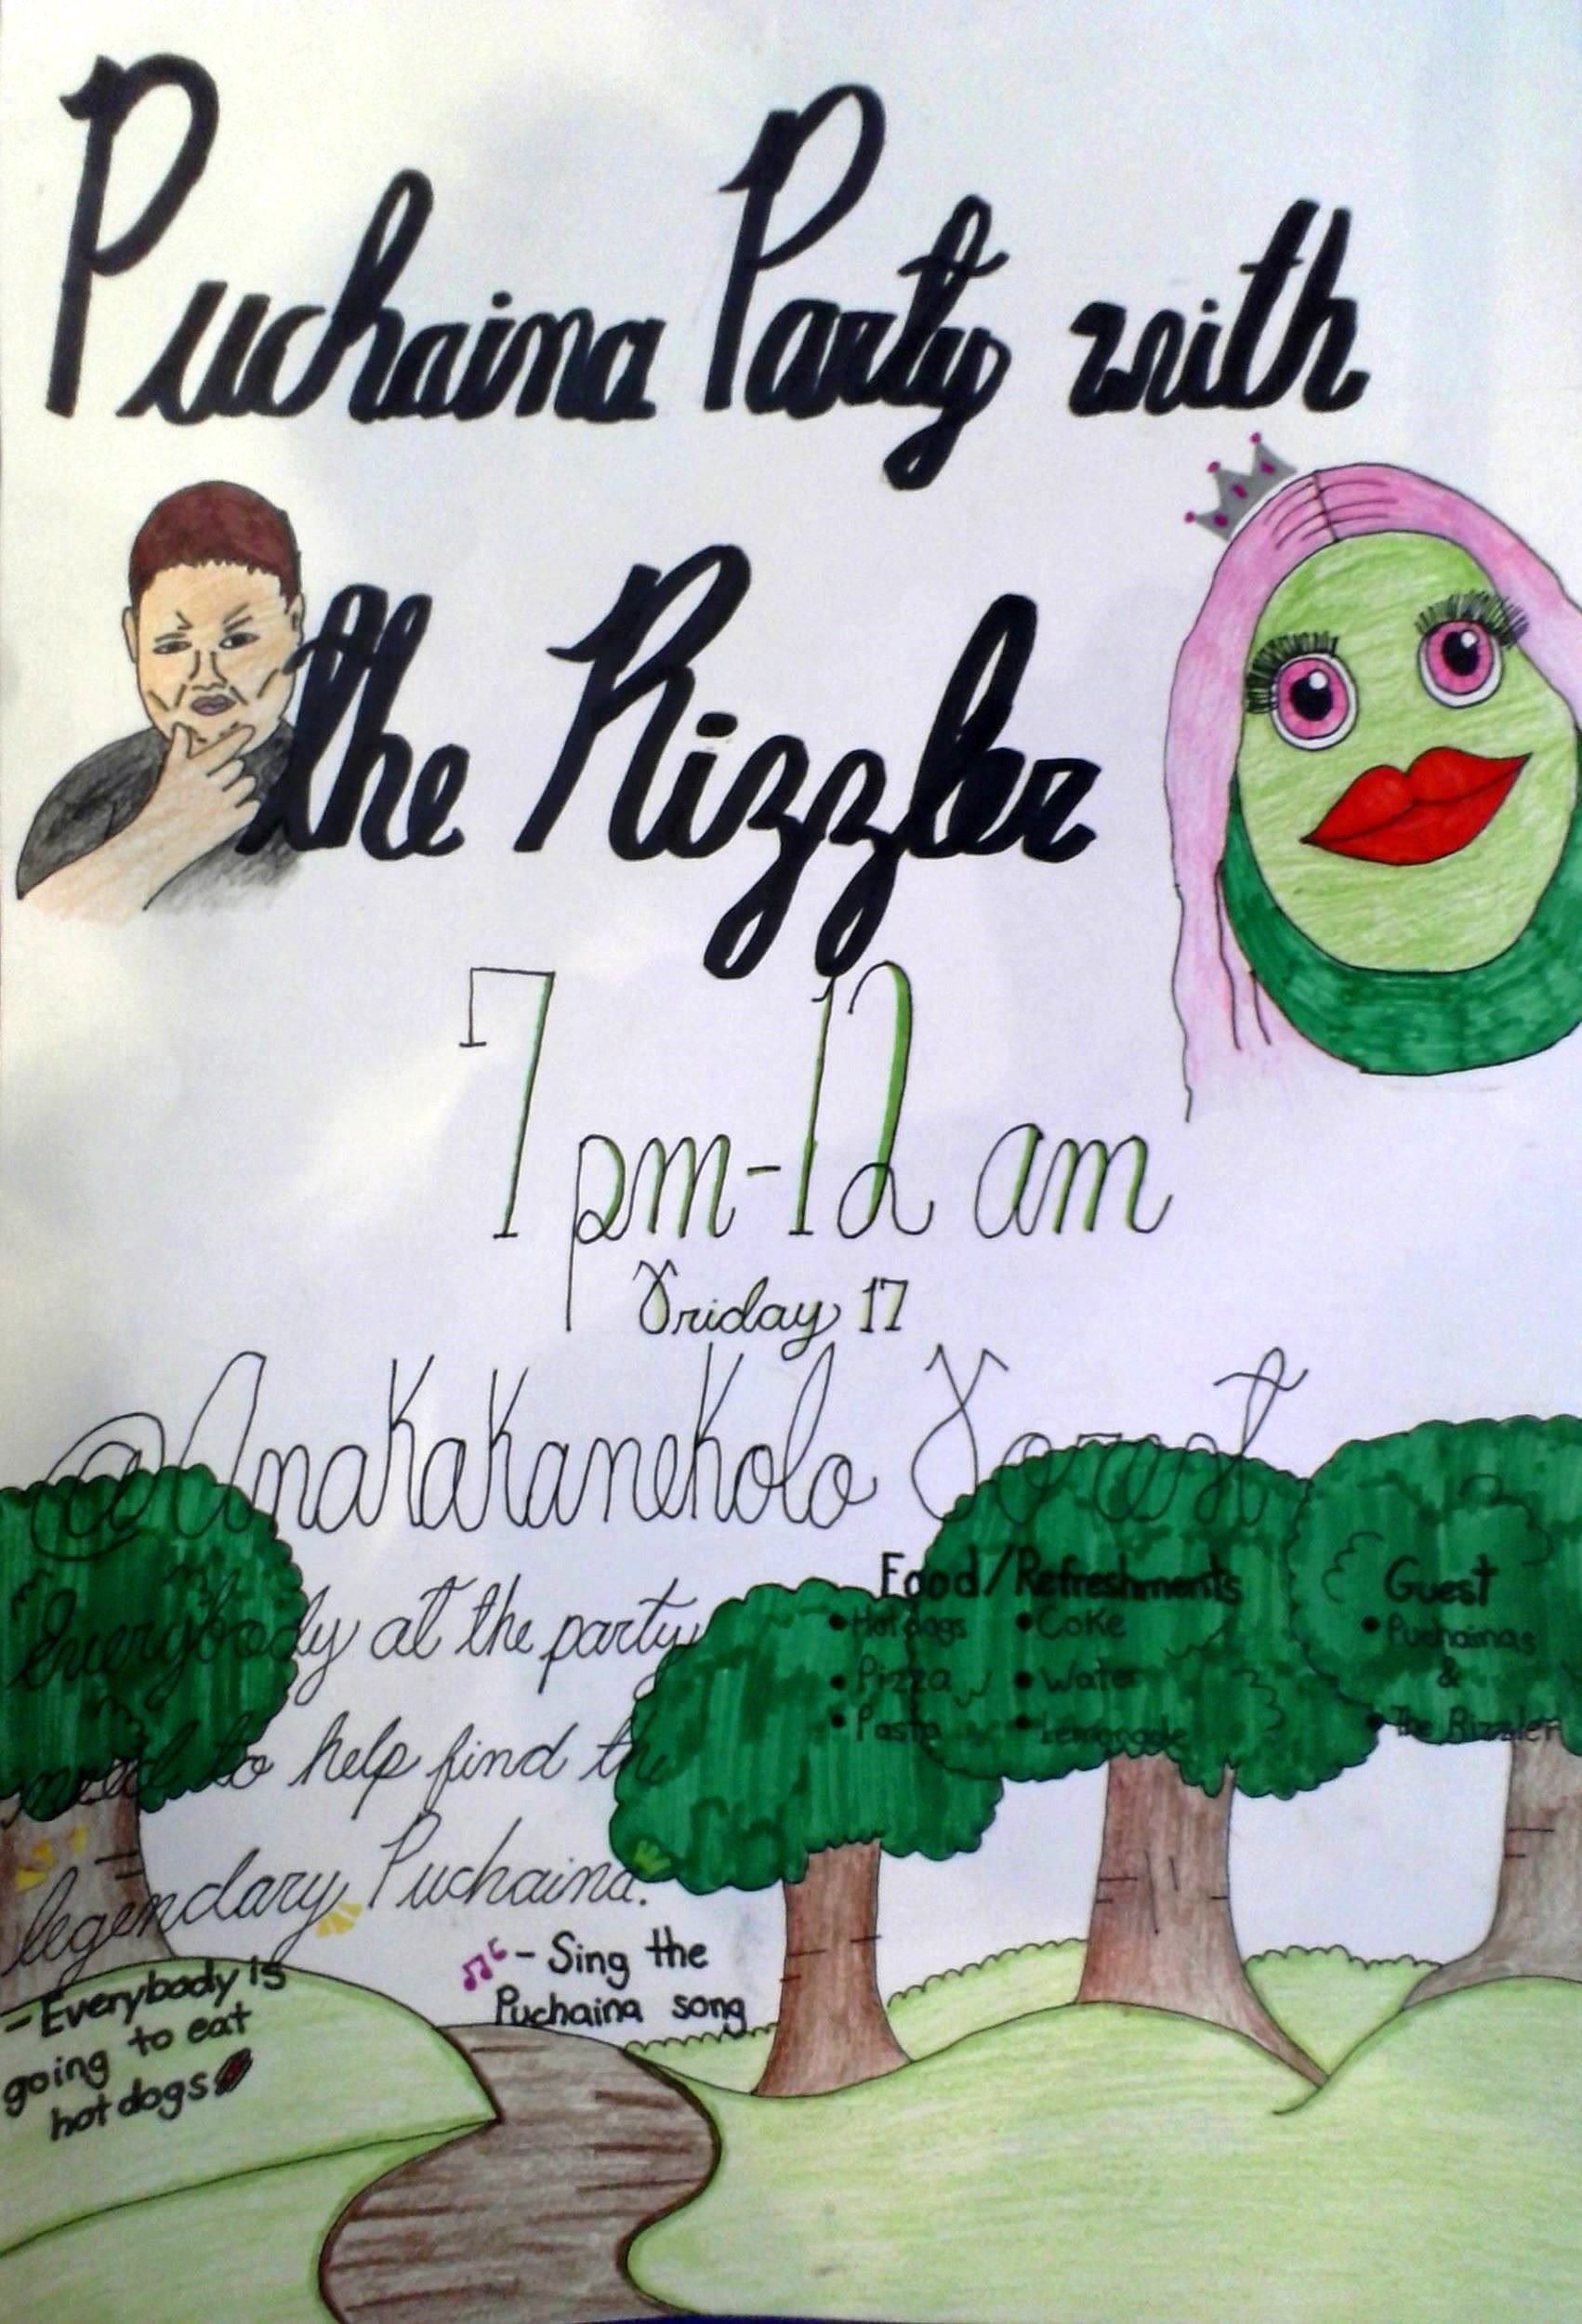 Puchaina Party with
the Rizzler
7 pm-12 am
Friday 17
@AnaKaKaneKolo Forest
Everybody at the party
need to help find the
legendary Puchaina.
Food/Refreshments
• Hot dogs • Coke
• Pizza • Water
• Pasta • Lemonade
Guest
• Puchainas
&
• The Rizzler
- Sing the
Puchaina song
- Everybody is
going to eat
hot dogs